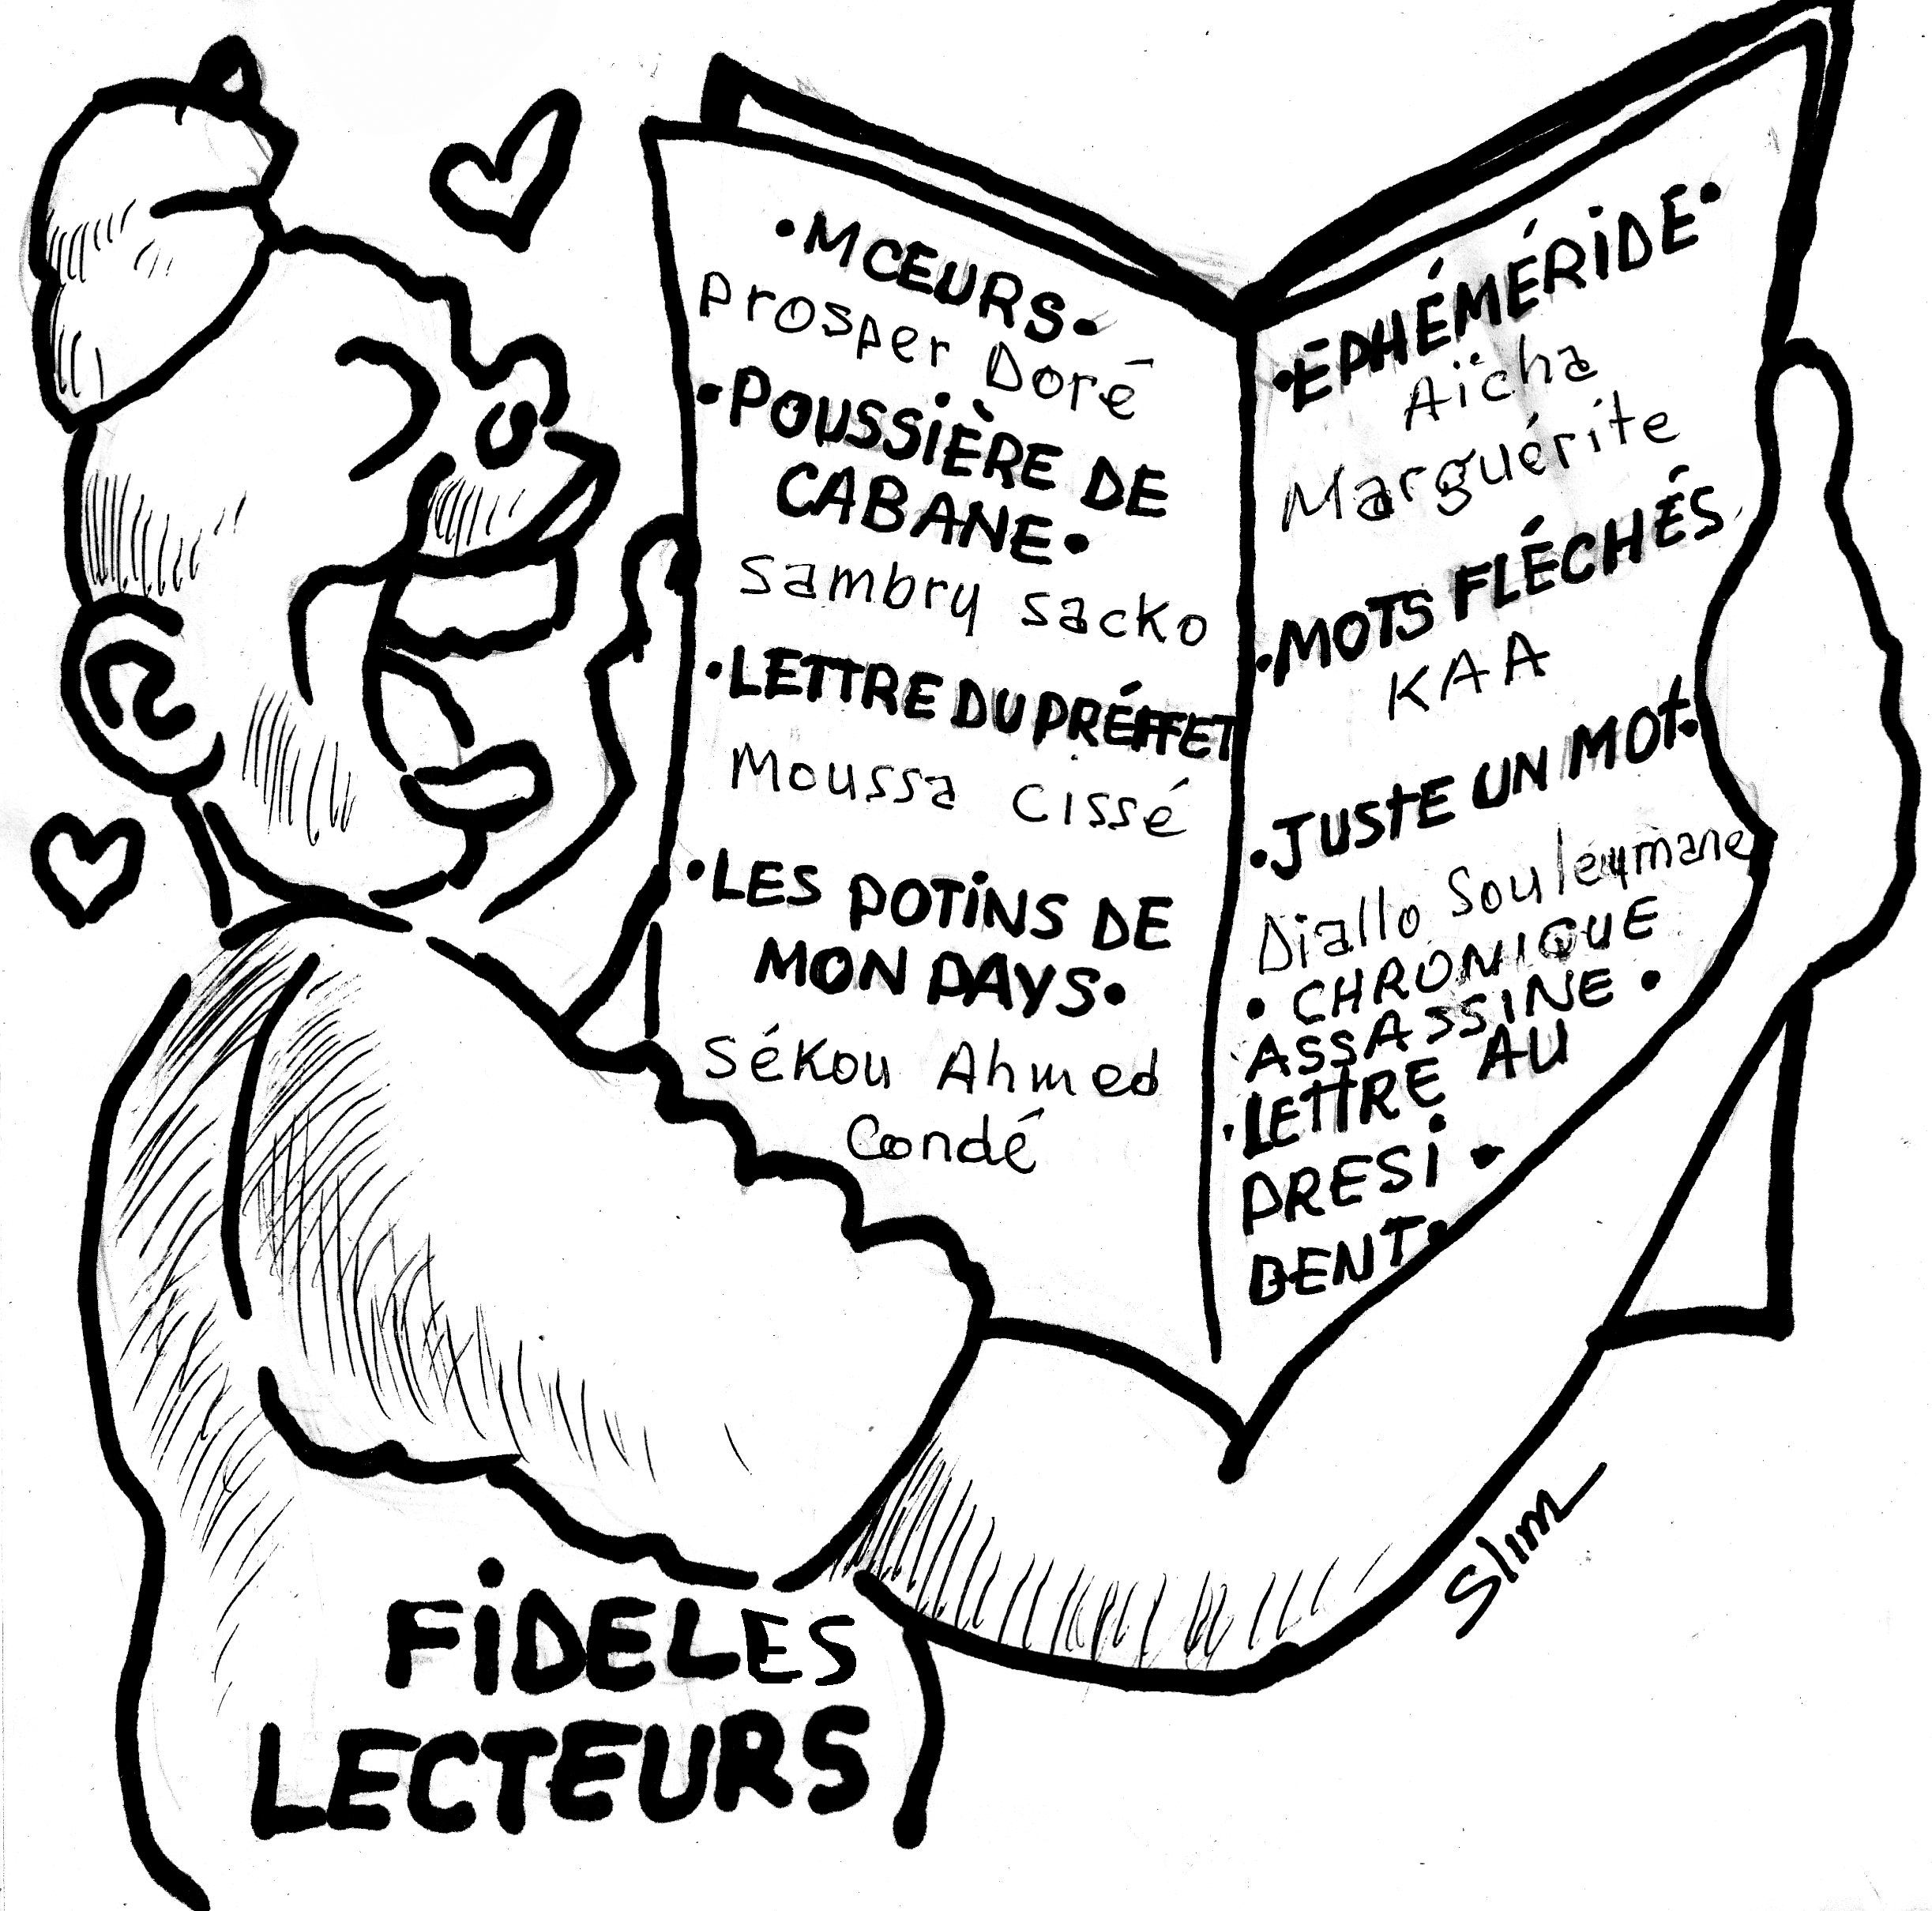 •MŒURS•
Prosper Doré
•POUSSIÈRE DE
CABANE•
Sambry Sacko
•LETTRE DU PRÉFFET
Moussa Cissé
•LES POTINS DE
MON PAYS•
Sékou Ahmed
Condé
•ÉPHÉMÉRIDE•
Aïcha
Marguérite
•MOTS FLÉCHÉS
KAA
•JUSTE UN MOT•
Diallo Souleymane
•CHRONIQUE
ASSASSINE•
•LETTRE AU
PRESI•
BENT•
Slim
FIDELES
LECTEURS